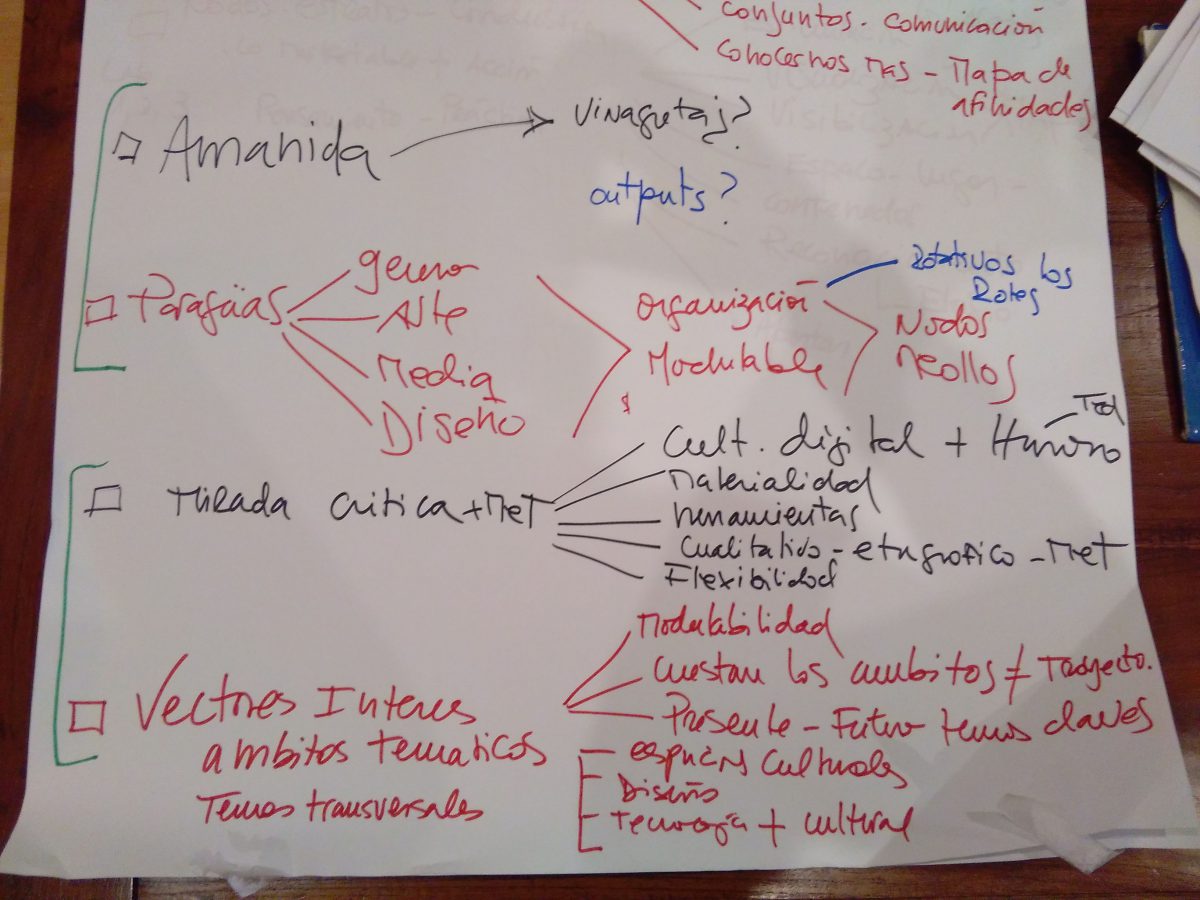 conjuntos. comunicación
conocernos mas - Mapa de
afinidades
Amanida
Vinagretas?
outputs?
Paraguas
genero
Arte
Media
Diseño
organización
Modulable
Rotativos los
Roles
Nodos
Meollos
Mirada critica + Met
Cult. digital + Humano
Trad
Materialidad
herramientas
Cualitativo - etnografico - Met
Flexibilidad
Vectores Interes
ambitos tematicos
Temas transversales
Modulabilidad
los ambitos ≠ Trayecto.
Presente - Futuro temas claves
espacios culturales
Diseño
Tecnología + cultural